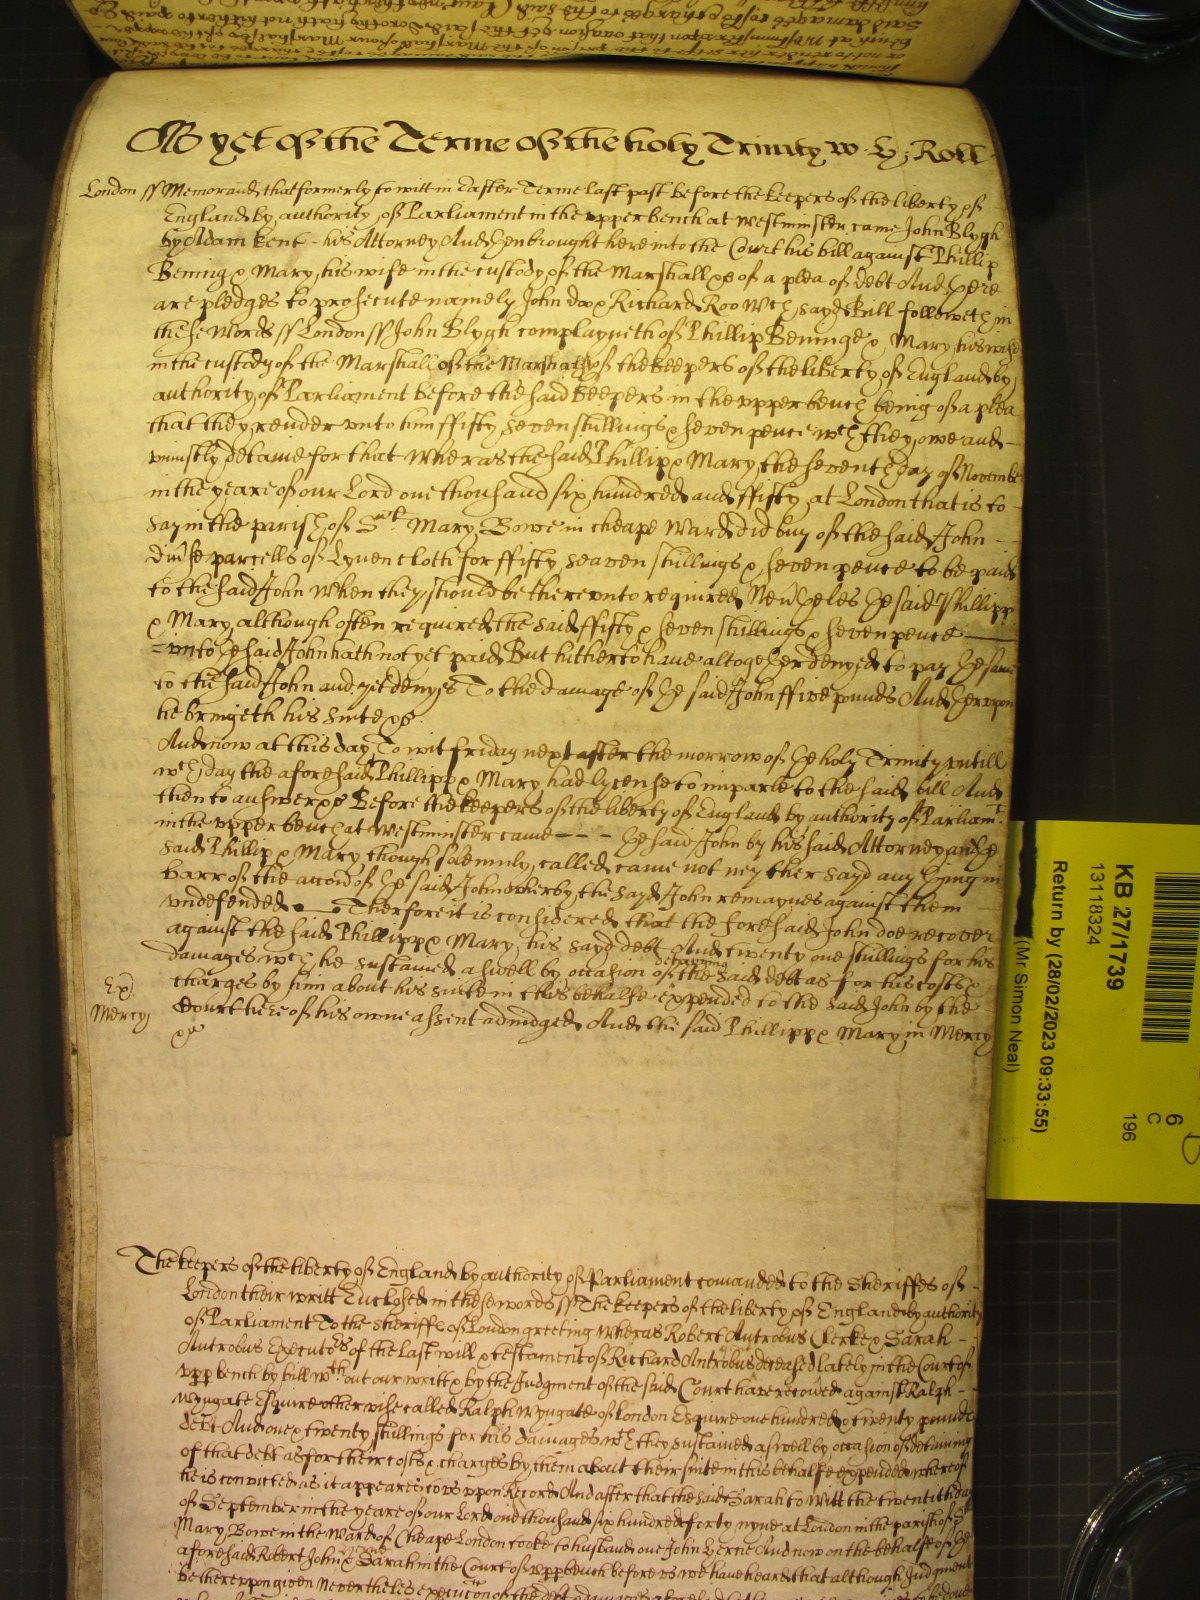 As yet of the Terme of the holy Trinity w. G; Roll
London ss Memorand that formerly to witt in Easter Terme last past before the keepers of the liberty of
England by authority of Parliament in the upper bench at Westminster came John Blygh
by Adam Kent his Attorney And then brought here into the Court his bill against Phillip
Bening & Mary his wife in the custody of the Marshall &c of a plea of debt And there
are pledges to prosecute namely John doo & Richard Roo wch sayd Bill followeth in
these words ss London ss John Blygh complayneth of Phillip Beninge & Mary his wife
in the custody of the Marshall of the Marshalsy of the keepers of the liberty of England by
authority of Parliament before the said keepers in the upper bench being of a plea
that they render unto him ffifty seven shillings & seven pence wch they owe and
uniustly detaine for that wheras the said Phillip & Mary the seventh day of November
in the yeare of our Lord one thousand six hundred and ffifty at London that is to
say in the parish of St Mary Bowe in cheape Ward did buy of the said John
divse parcells of Lynen cloth for ffifty seaven shillings & seven pence to be paid
to the said John when they should be thereunto required Nevtheles the said Phillipp
& Mary although often required the said ffifty & seven shillings & seven pence
unto the said John hath not yet paid But hitherto have altogether denyed to pay the same
to the said John and yet denyes To the damage of the said John ffive pounds And therupon
he bringeth his suite &c.
And now at this day To wit friday next after the morrow of the holy Trinity untill
wch day the aforesaid Phillipp & Mary had lycense to imparle to the said bill And
then to answer &c Before the keepers of the liberty of England by authority of Parliamt
in the upper bench at Westminster came the said John by his said Attorney and the
said Phillip & Mary though solemnly called came not neyther sayd any thing in
barr of the accion of the said John wherby the sayd John remaynes against them
undefended Therfore it is considered that the foresaid John doe recover
against the said Phillipp & Mary his sayd debt And twenty one shillings for his
damages wch he sustained aswell by occasion of the detayning said debt as for his costs &
charges by him about his suite in this behalfe expended to the said John by the
Ex
Mercy
Court here of his owne assent adiudged And the said Phillipp & Mary in Mercy
&c
The keepers of the liberty of England by authority of Parliament comanded to the Sheriffes of
London their writt Enclosed in these words ss The keepers of the liberty of England by authority
of Parliament To the sheriffs of London greeting Wheras Robert Antrobus Clerke & Sarah
Antrobus Executors of the last will & testament of Richard Antrobus deceased lately in the Court of
upp bench by bill wthout our writt & by the Judgment of the said Court have recoved against Ralph
Wyngate Esquire otherwise called Ralph Wyngate of London Esquire one hundred & twenty pounds
debt And one & twenty shillings for his damages wch they sustained aswell by occasion of detaining
of that debt as for their costs & charges by them about their suite in this behalfe expended whereof
he is convicted as it appeares to us upon Record And after that the said Sarah to witt the twentith day
of September in the yeare of our Lord one thousand six hundred forty nyne at London in the parish of St
Mary Bowe in the Ward of Cheape London tooke to husband one John Verne And now on the behalfe of the
aforesaid Robert John & Sarah in the Court of upp bench before us we have heard that although Judgment
be thereupon given Nevertheles execution of the debt & damages aforesaid
KB 27/1739
13118324
Return by (28/02/2023 09:33:55)
(Mr Simon Neal)
6
C
196